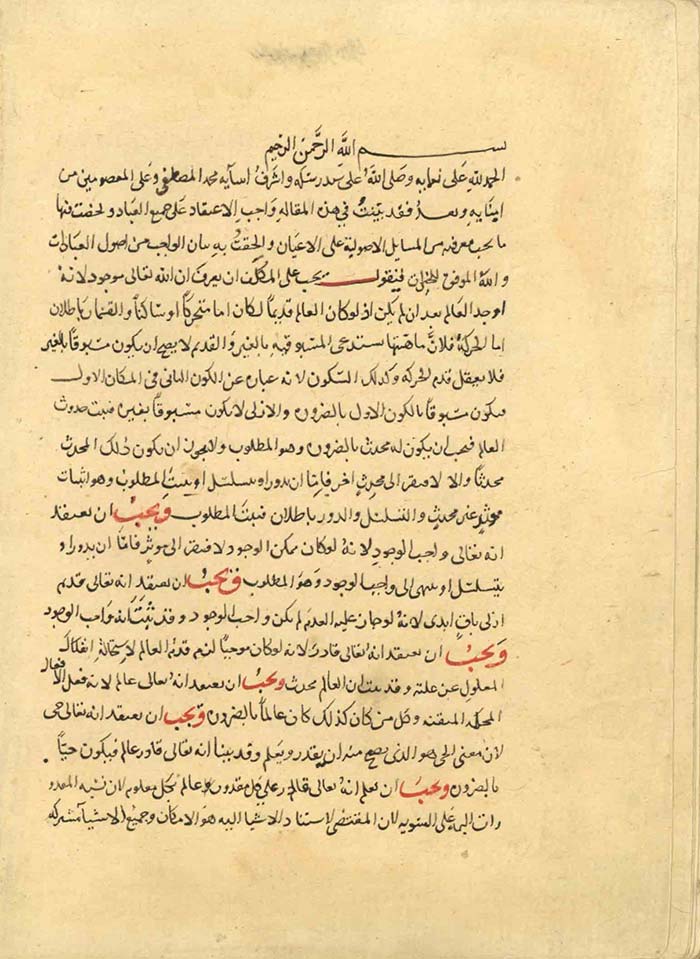 بسم الله الرحمن الرحيم
الحمد لله على نعمايه وصلى الله على سيد رسله واشرف انبيآيه محمد المصطفى وعلى المعصومين من
امنايه وبعد فقد بينت في هذه المقاله واجب الاعتقاد على جميع العباد ولخصت فيها
ما يجب معرفته من المسايل الاصولية على الاعيان والحقت به بيان الواجب من اصول العبادات
والله الموفق للخيرات فنقول يجب على المكلف ان يعرف ان الله تعالى موجود لانه
اوجد العالم بعد ان لم يكن اذ لو كان العالم قديما لكان اما متحركا او ساكنا والقسمان باطلان
اما الحركة فلان ماهيتها تستدعي المسبوقيه بالغير والقديم لا يصح ان يكون مسبوقا بالغير
فلا يعقل قدم الحركه وكذلك السكون لانه عباره عن الكون الثاني في المكان الاول
فيكون مسبوقا بالكون الاول بالضروره والازلي لا يكون مسبوقا بغيره فثبت حدوث
العالم فيجب ان يكون له محدث بالضروره وهو المطلوب ولا يجوز ان يكون ذلك المحدث
محدثا والا لافتقر الى محدث اخر فاما ان يدور او يتسلسل او يثبت المطلوب وهو اثبات
موثر غير محدث والتسلسل والدور باطلان فيثبت المطلوب ويجب ان يعتقد
انه تعالى واجب الوجود لانه لو كان ممكن الوجود لافتقر الى موثر فاما ان يدور او
يتسلسل او ينتهى الى واجب الوجود وهو المطلوب ويجب ان يعتقد انه تعالى قديم
ازلي باق ابدى لانه لو جاز عليه العدم لم يكن واجب الوجود وقد ثبت انه واجب الوجود
ويجب ان يعتقد انه تعالى قادر لانه لو كان موجبا لزم قدم العالم لاستحالة انفكاك
المعلول عن علته وقد بينت ان العالم محدث ويجب ان يعتقد انه تعالى عالم لانه فعل الافعال
المحكمه المتقنه وكل من كان كذلك كان عالما بالضروره ويجب ان يعتقد انه تعالى حي
لان معنى الحي هو الذي يصح منه ان يقدر ويعلم وقد بينا انه تعالى قادر عالم فيكون حيا
بالضروره ويجب ان يعلم انه تعالى قادر على كل مقدور عالم بكل معلوم لان نسبه المقدو
رات اليه على السويه لان المقتضى لاستناد الاشيا اليه هو الامكان وجميع الاشيآ مشتركه